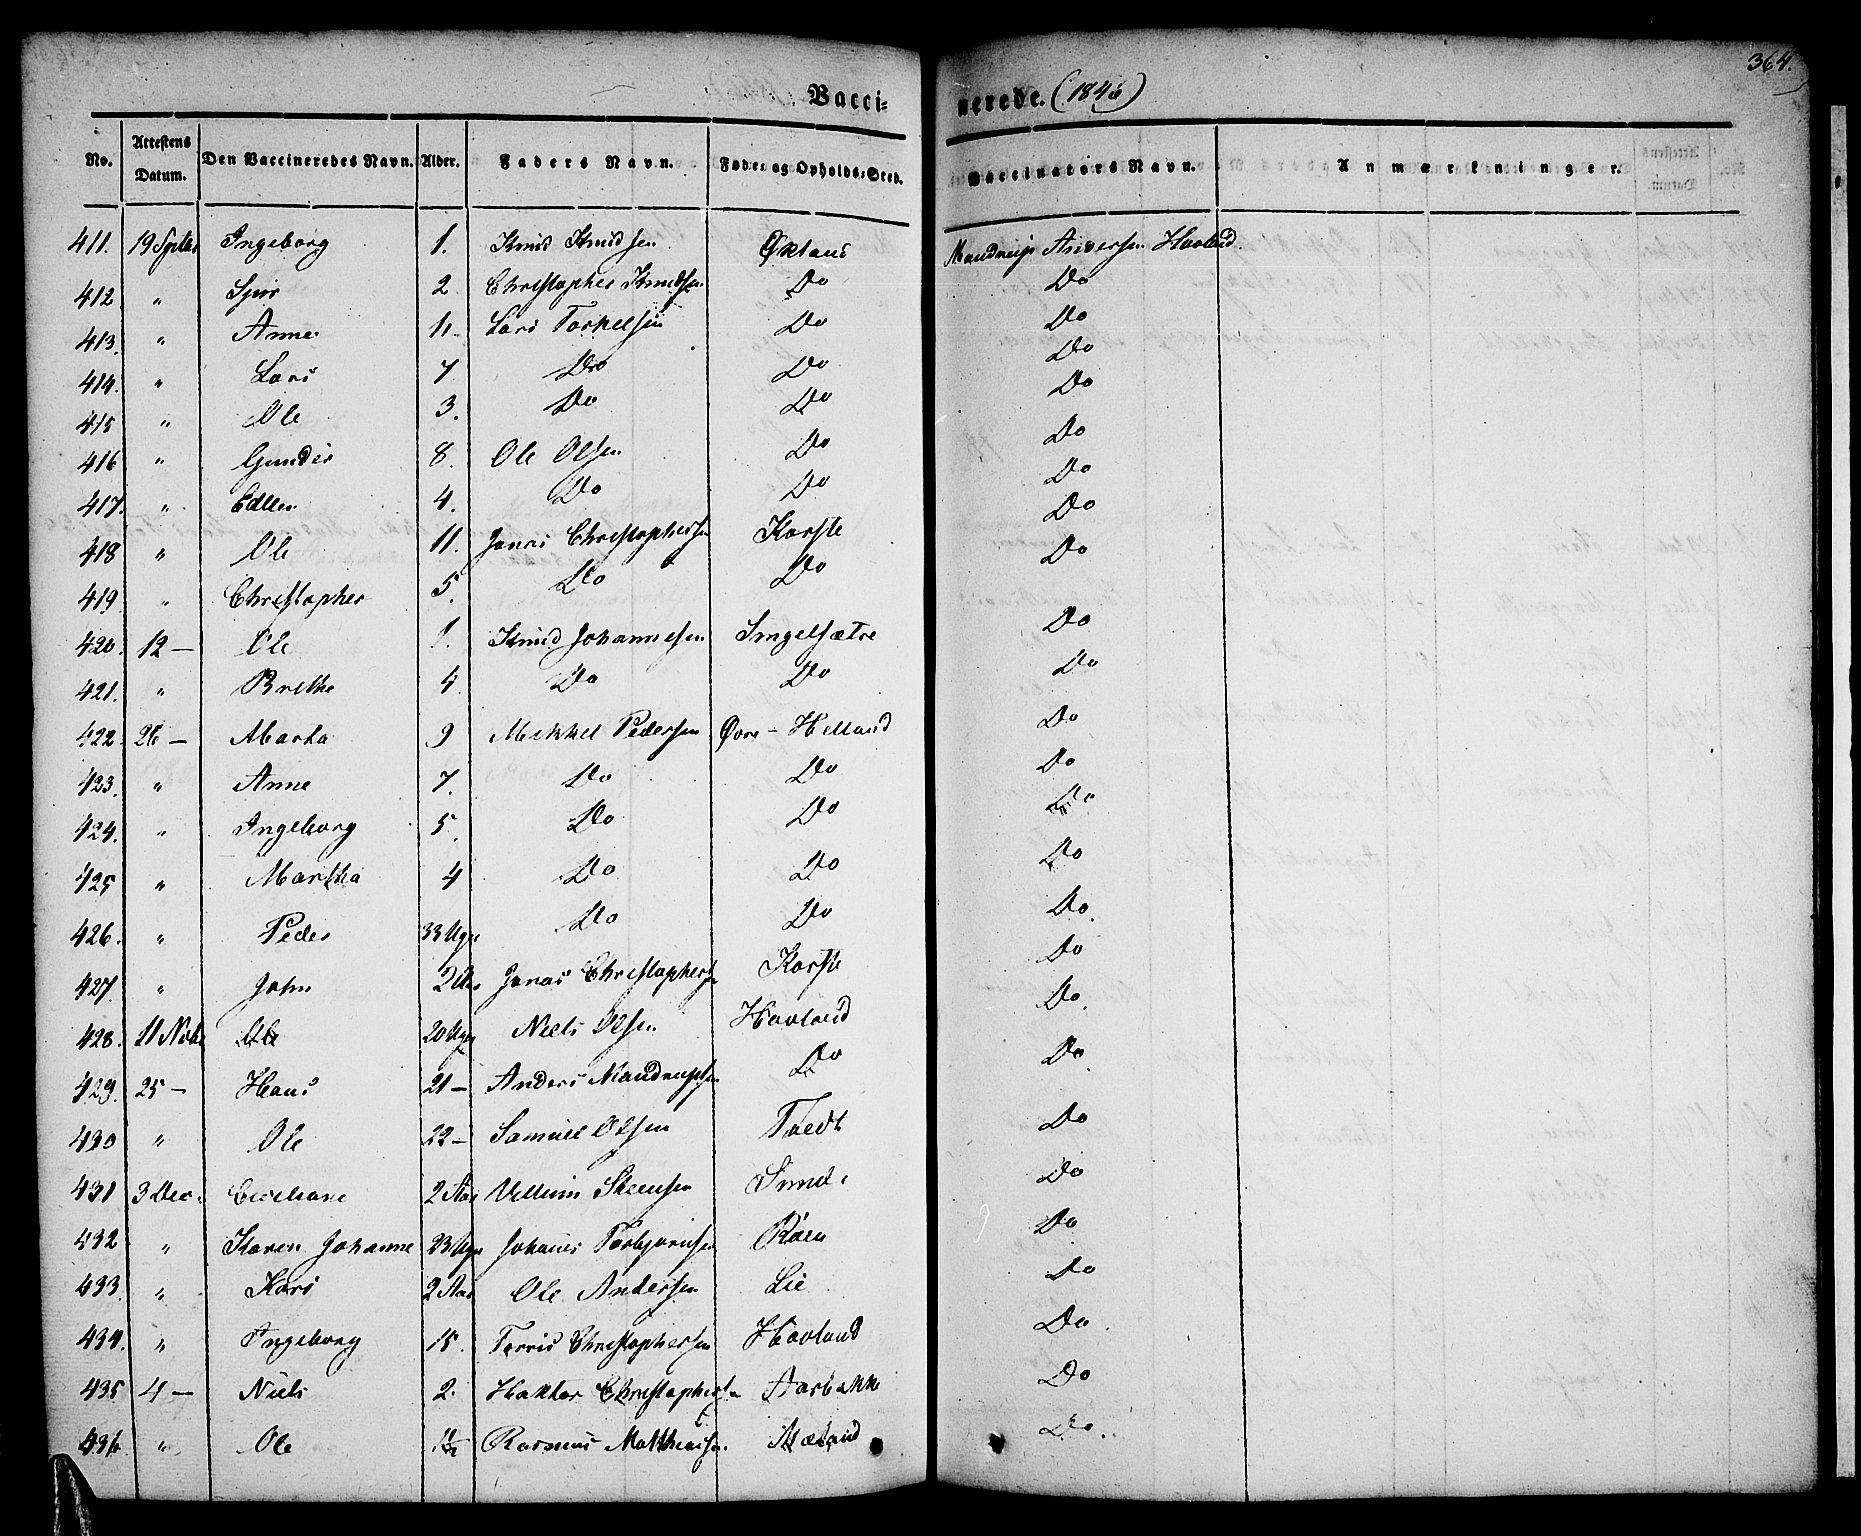 364.
Vacci-nerede. (1846)
No. Attestens Datum. Den Vaccineredes Navn. Alder. Faders Navn. Føde- og Opholds-Sted. Vaccinators Navn. Anmærkninger.
411. 19 Septbr Ingeborg 1. Knud Knudsen Øxland Mandrup Andersen Havland.
412 " Siri 2 Christopher Knudsen Do Do
413. " Anne 11. Lars Torkelsen Do Do
414. " Lars 7 Do Do Do
415 " Ole 3. Do Do Do
416 " Gunder 8. Ole Olsen Do Do
417. " Edlen 4. Do Do Do
418 " Ole 11. Jonas Christophersen Korste Do
419 " Christopher 5. Do Do Do
420. 12 — Ole 1. Knud Johannesen Smgelsætre Do
421. " Brethe 4. Do Do Do
422. 26 — Marta 9 Mikkel Pedersen Øvre-Helland Do
423. " Anne 7. Do Do Do
424. " Ingeborg 5. Do Do Do
425 " Martha 4 Do Do Do
426. " Peder 33 Uger Do Do Do
427. " John 2 Jonas Christophersen Korste Do
428. 11 Novbr Ole 20 Uger Niels Olsen Havland Do.
429. 25 — Hans 21 — Anders Mandrupsen Do Do
430 " Ole 22 — Samuel Olsen Tvedt Do
431 3 Dec. 2 Aar Villum Steensen Do
432 " Karen Johanne 23 Uger Johanes Torbjørnsen Røen Do
433. " Kari 2 Aar Ole Andersen Lie Do
434. " Ingeborg 15. Terris Christophersen Havland Do.
435 4 — Niels 2. Haktor Christophersen Aarbakke Do
436 " Ole Rasmus Matthiasen Mæland Do.